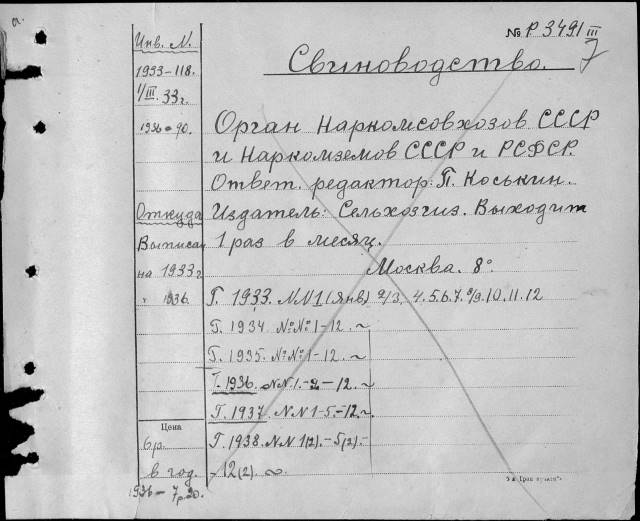 а.
№ Р 3491 III
7
Инв. N.
Свиноводство.
1933-118.
1/III. 33 г.
1936-90.
Орган Наркомсовхозов СССР
и Наркомземов СССР и РСФСР.
Ответ. редактор: П. Коськин.
Откуда
Издатель: Сельхозгиз. Выходит
Выписан
1 раз в месяц.
на 1933 г.
Москва. 8°.
" 1936.
Г. 1933. NN 1 (янв) 2/3, 4. 5. 6. 7. 8/9. 10. 11. 12
Г. 1934. №№ 1-12. ~
Г. 1935. №№ 1-12. ~
Г. 1936. NN 1.-2-12. ~
Г. 1937. NN 1-5.-12. ~
Цена
6 р.
Г. 1938. NN 1(2).-5(2).-
в год.
-12(2). ~
1936-7р.20.